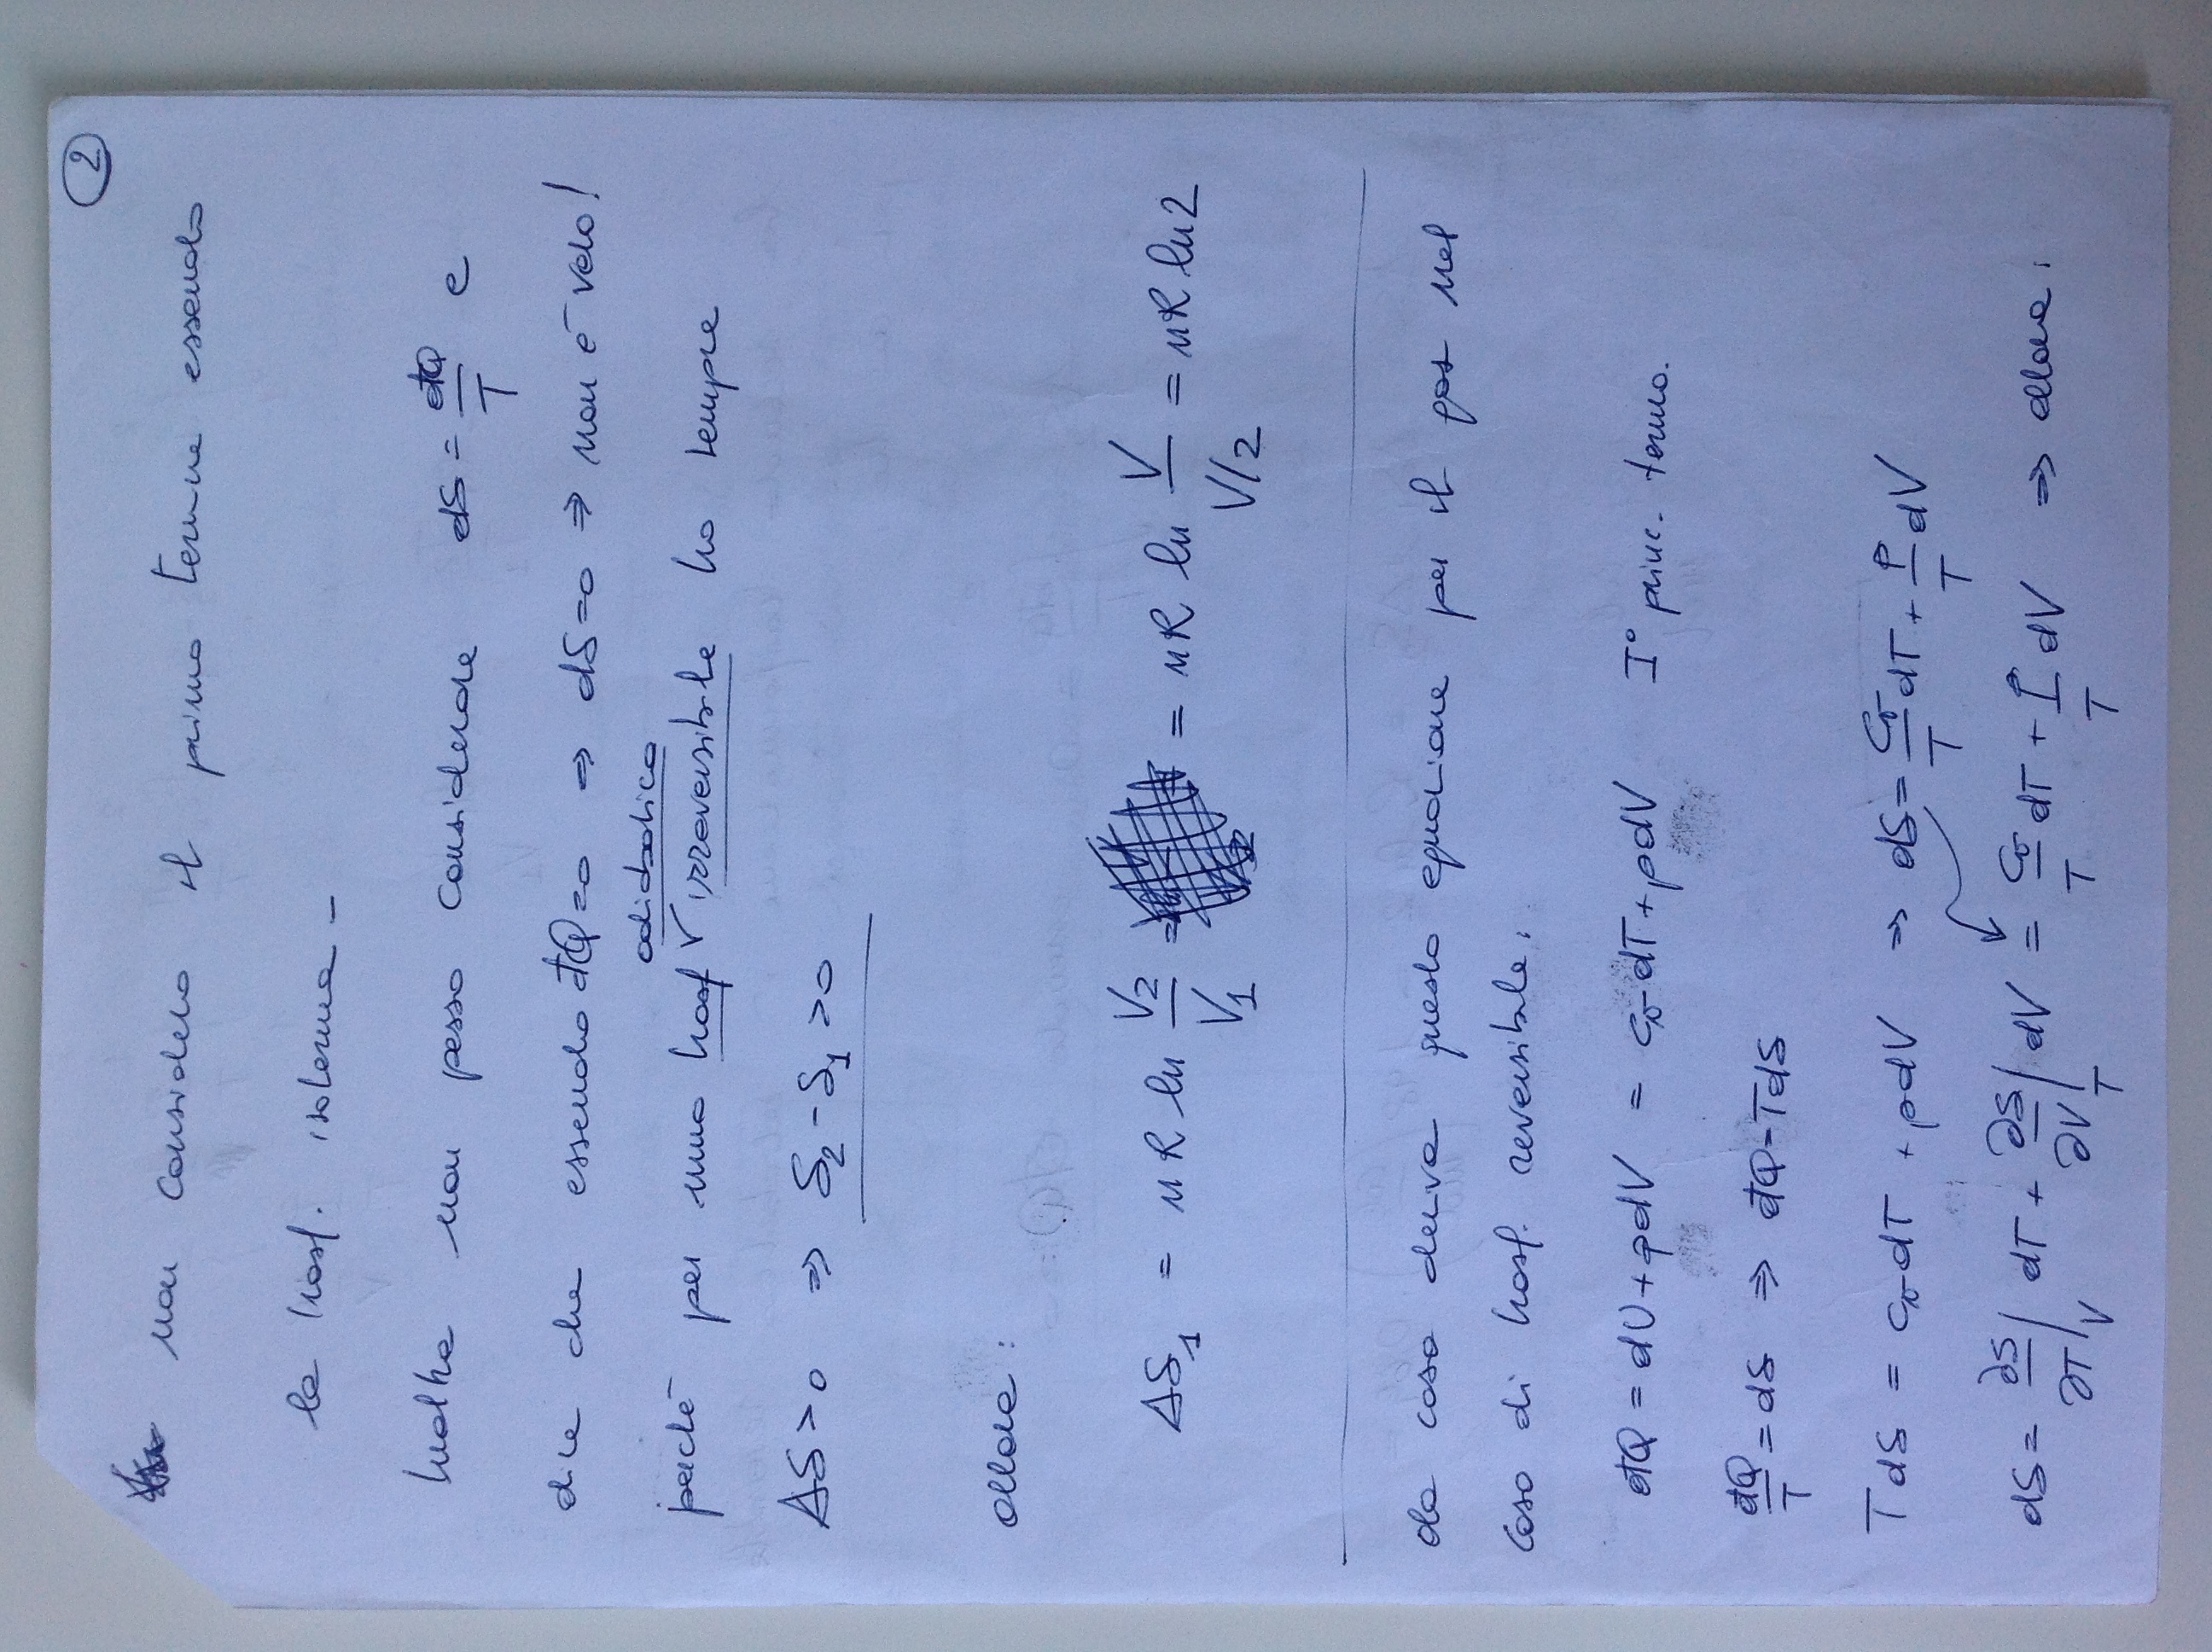 2
non considero il primo termine essendo
la trasf. isoterma -
Inoltre non posso considerare dS = đQ/T e
dire che essendo đQ=0 ⇒ dS=0 ⇒ non è vero!
adiabatica
perché per una trasf √ irreversibile ho sempre
ΔS>0 ⇒ S₂-S₁>0
allora:
ΔS₁ = nR ln V₂/V₁ = = nR ln V/V/2 = nR ln2
da cosa deriva questa equazione per il gas nel
caso di trasf. reversibile.
đQ = dU+pdV = cv dT+pdV I° princ. termo.
đQ/T = dS ⇒ đQ=TdS
TdS = cv dT + pdV ⇒ dS= cv/T dT + p/T dV
dS= ∂S/∂T|V dT + ∂S/∂V|T dV = cv/T dT + p/T dV ⇒ allora: